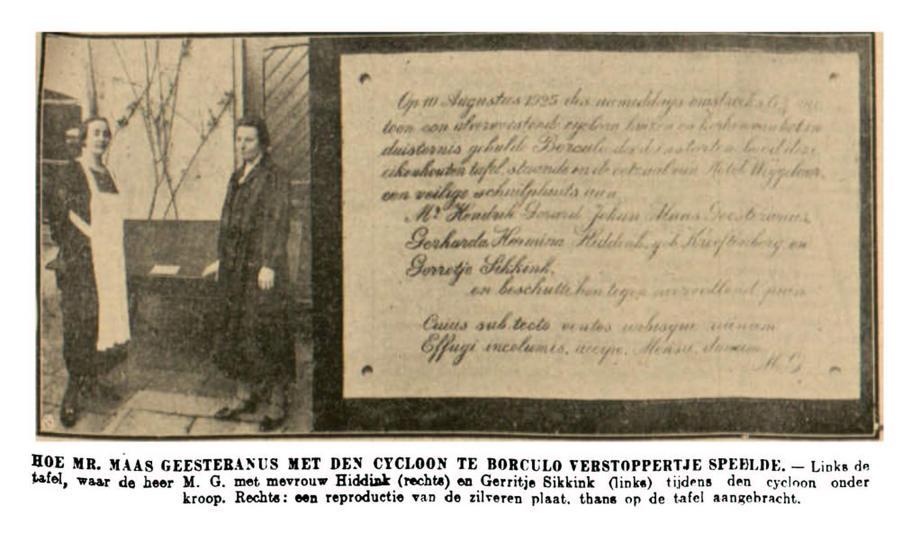 Op 10 Augustus 1925 des namiddags omstreeks
toen een alverwoestende cycloon huizen en kerken van het in
duisternis gehulde Borculo deed instorten bood deze
eikenhouten tafel, staande in de eetzaal van Hotel Weggelaar,
een veilige schuilplaats aan
Mr Hendrik Gerard Johan Maas Geesteranus,
Gerharda Hermina Hiddink, geb. Kreeftenberg en
Gerretje Sikkink,
en beschutte hen tegen neervallend puin
Cuius sub tecto ventos urbisque ruinam
Effugi incolumis, accipe, Mensa,
M. G.
HOE MR. MAAS GEESTERANUS MET DEN CYCLOON TE BORCULO VERSTOPPERTJE SPEELDE. — Links de
tafel, waar de heer M. G. met mevrouw Hiddink (rechts) en Gerritje Sikkink (links) tijdens den cycloon onder
kroop. Rechts: een reproductie van de zilveren plaat, thans op de tafel aangebracht.